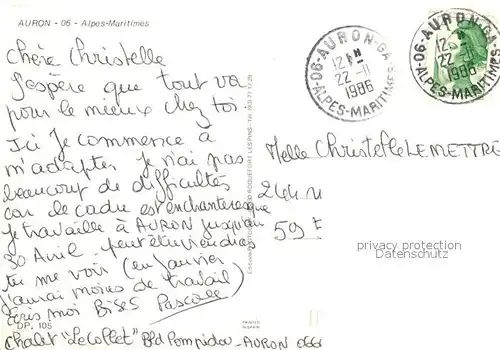 AURON - 06 - Alpes-Maritimes
Chère Christelle
J'espère que tout va
pour le mieux chez toi.
Ici Je commence à
m'adapter je n'ai pas
beaucoup de difficultés
car le cadre est enchanteresque
Je travaille à AURON jusqu'au
30 Avril - peut être viendras
tu me voir (en Janvier
j'aurai moins de travail)
écris moi Bises Pascale
DP. 105
Chalet "Le Collet" Bld Pompidou - AURON 0666
06-AURON-GA
12H
22-11
1986
ALPES-MARITIMES
06-AURON-GA
12H
22-11
1986
ALPES-MARITIMES
Melle Christelle LEMETTRE
244 
59 
privacy protection
DaRnnOK.com